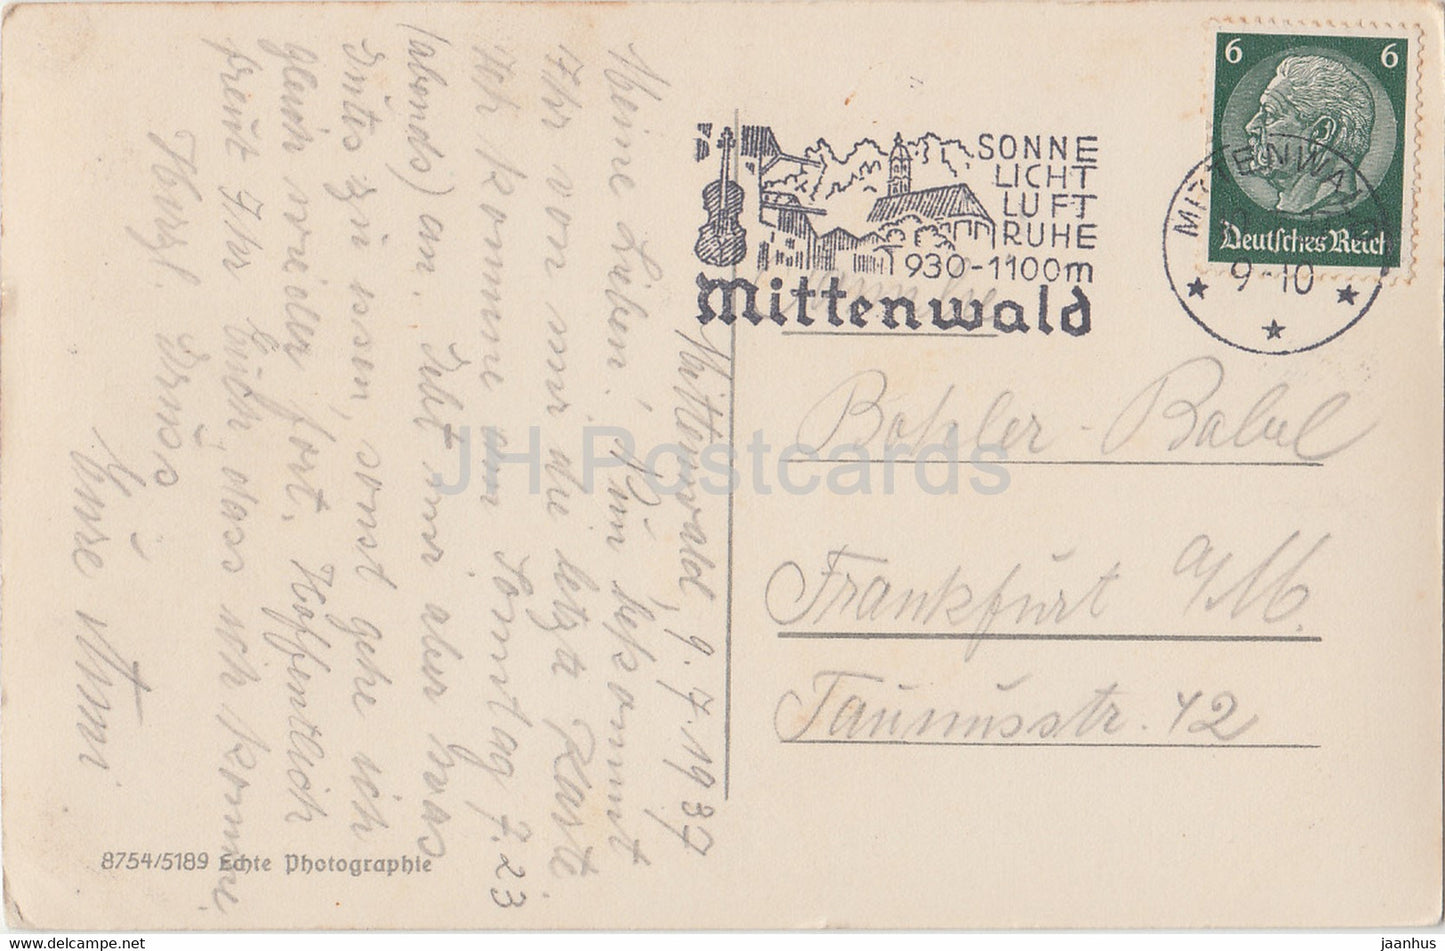 Mittenwald, 9.7.1937
Meine Lieben! Nun bekommt
Ihr von mir die letzte Karte.
Ich komme am Sonntag 7.23
(abends) an. Seid mir aber was
gutes zu essen, sonst gehe ich
gleich wieder fort. Hoffentlich
freut Ihr Euch, dass ich komme.
Herzl. Gruss
Eure Anni
8754/5189 Echte Photographie
SONNE
LICHT
LUFT
RUHE
930-1100m
Mittenwald
6 6
Deutsches Reich
MITTENWALD
9-10
Familie
Bohler-Babel
Frankfurt a/M.
Taunusstr. 42
JH Postcards
delcampe.net
jaanhus